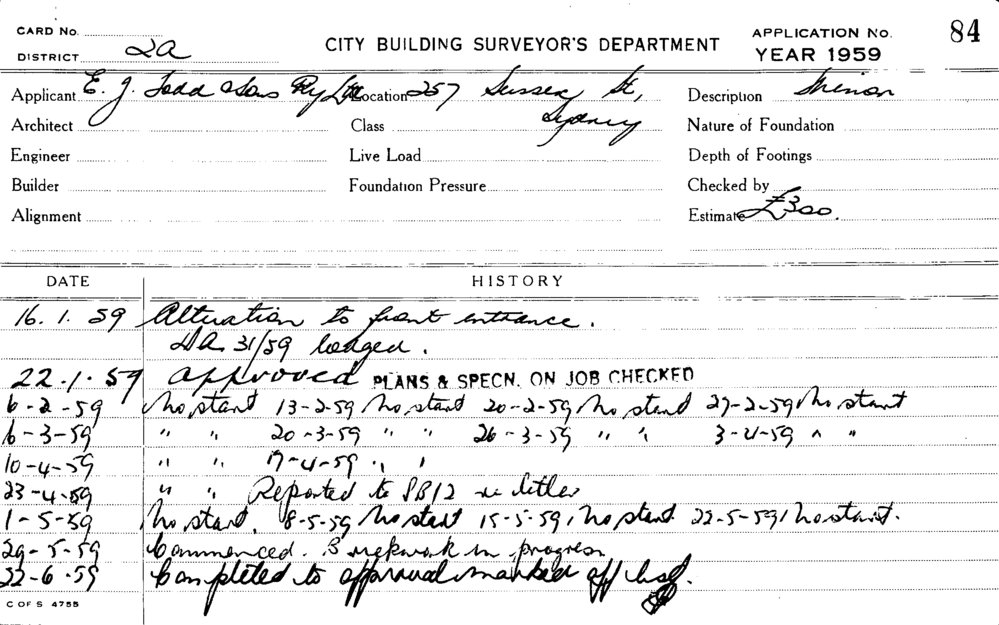 CARD No.
DISTRICT 2A
CITY BUILDING SURVEYOR'S DEPARTMENT
APPLICATION No. 84
YEAR 1959
Applicant E. J. Todd & Sons Pty Ltd Location 257 Sussex St, Description Minor
Architect Class Sydney Nature of Foundation
Engineer Live Load Depth of Footings
Builder Foundation Pressure Checked by
Alignment Estimate £300.
DATE HISTORY
16. 1. 59 Alteration to front entrance.
DA. 31/59 lodged.
22.1.59 approved PLANS & SPECN. ON JOB CHECKED
6-2-59 No start 13-2-59 No start 20-2-59 No start 27-2-59 No start
6-3-59 " " 20-3-59 " " 26-3-59 " " 3-4-59 " "
10-4-59 " " 17-4-59 " "
23-4-59 " " Reported to letter
1-5-59 No start. 8-5-59 No start 15-5-59, No start 22-5-59, No start.
29-5-59 Commenced. Brickwork in progress
22-6-59 Completed to approval marked off list.
C OF S 4755